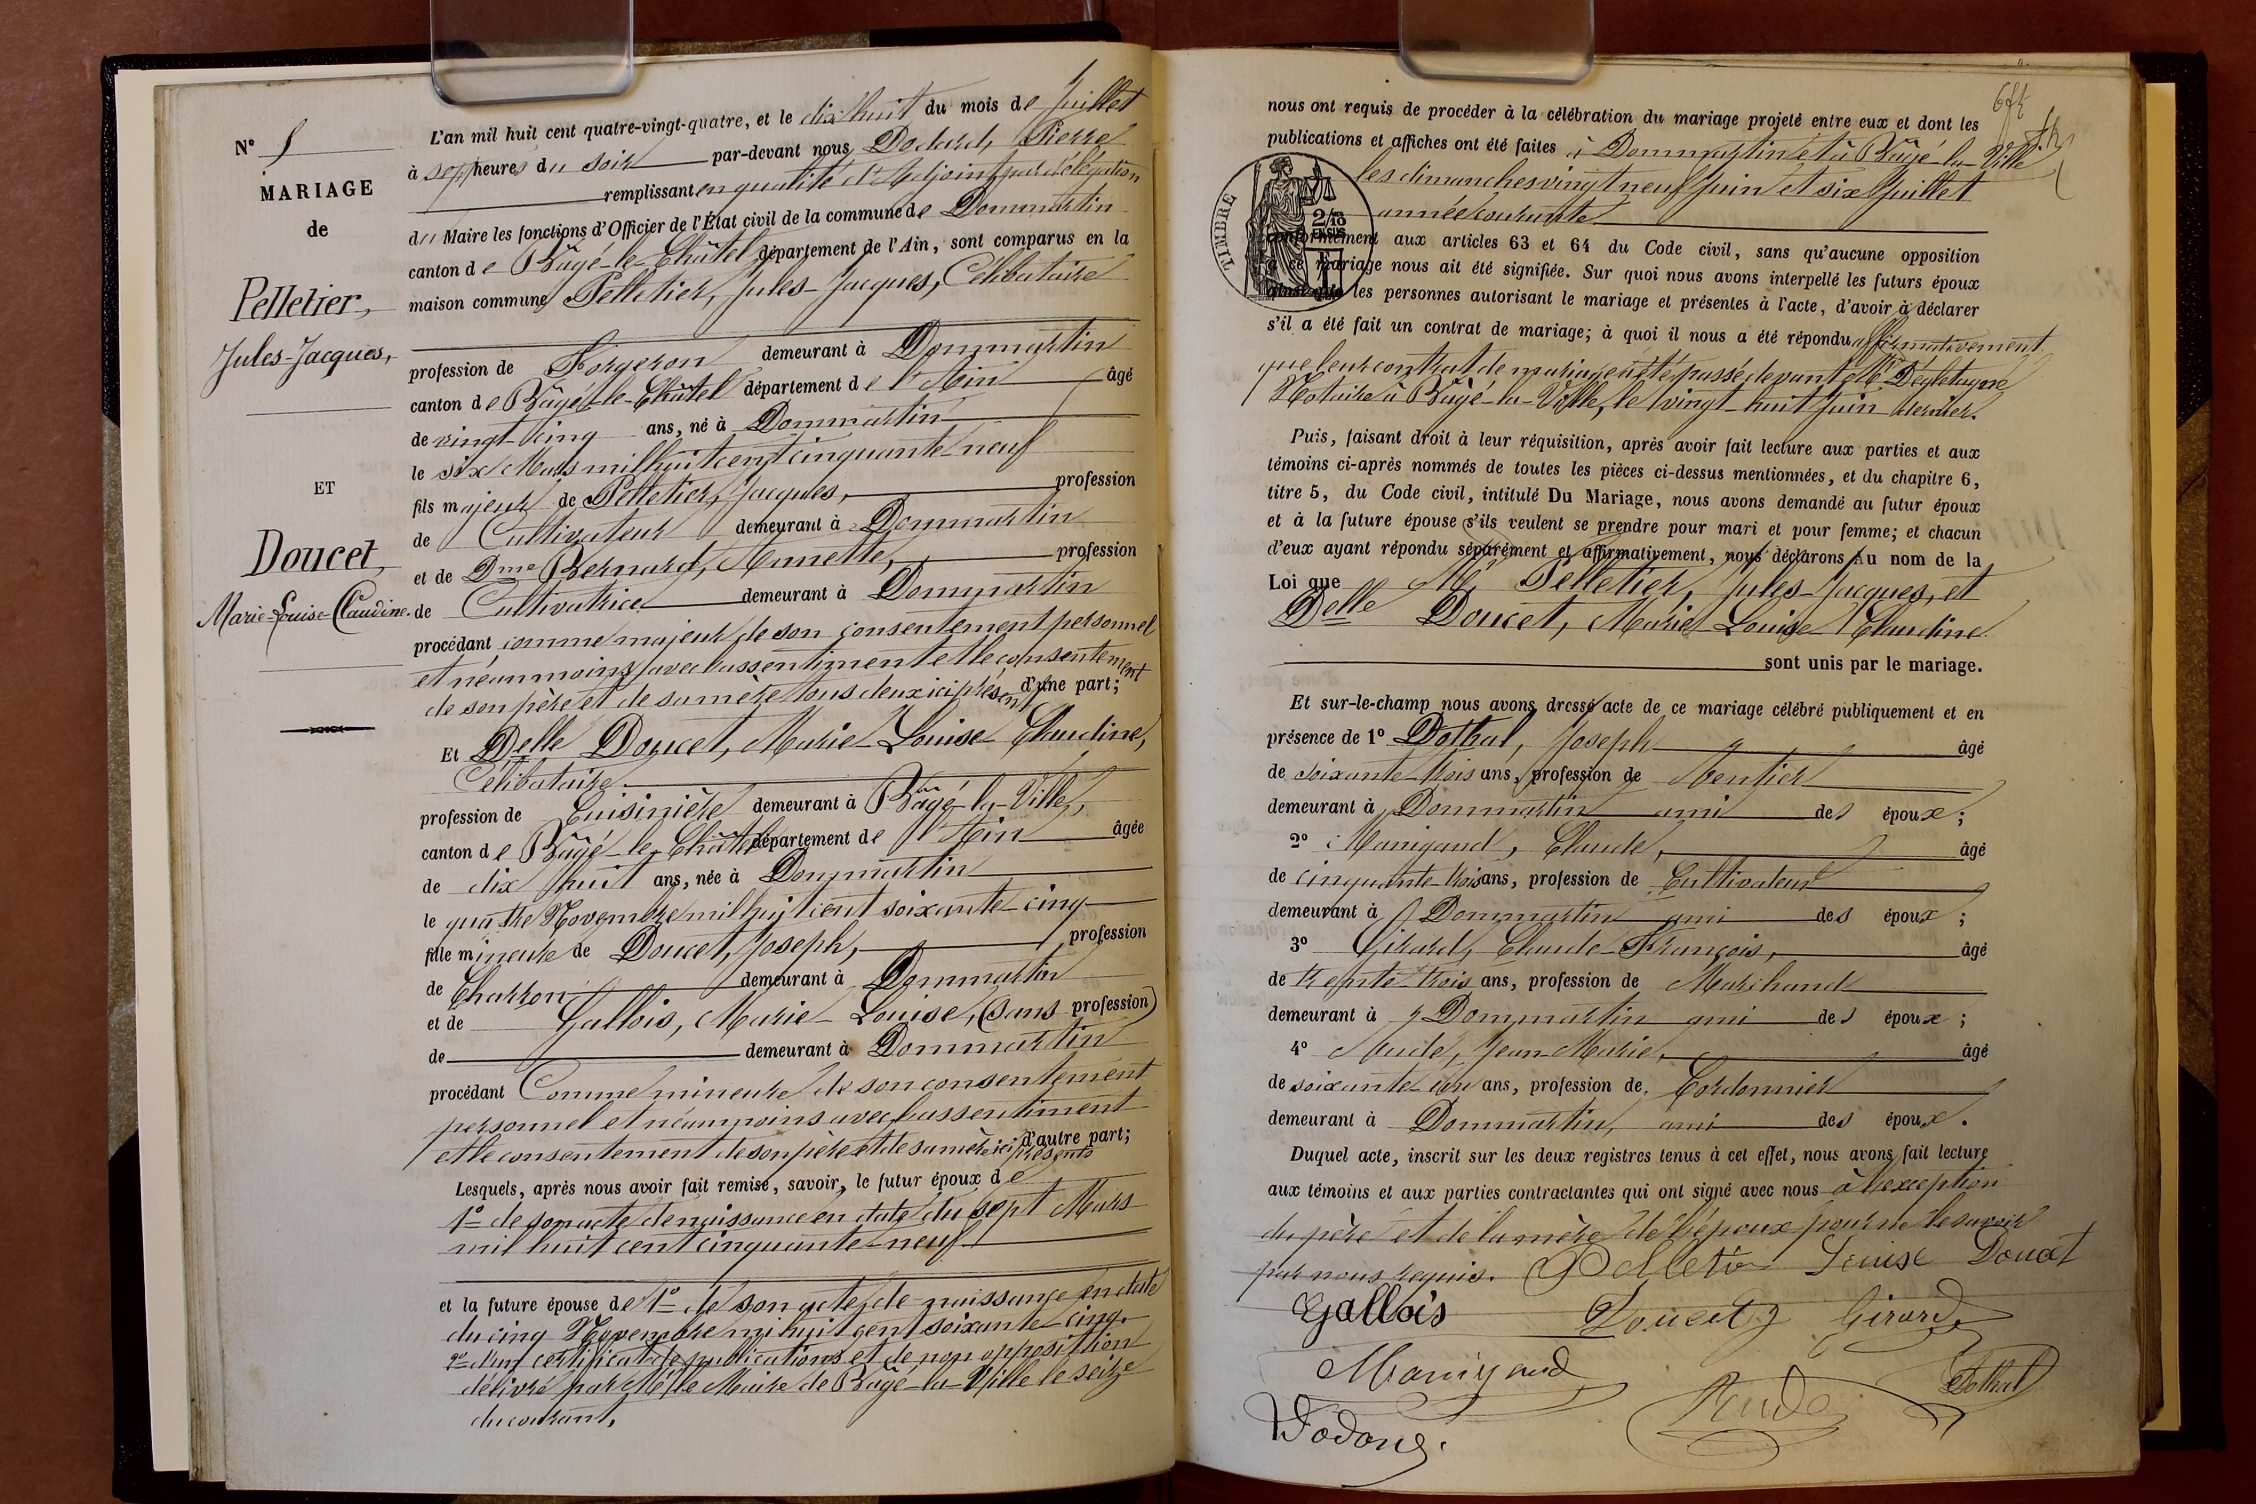 N° 8
MARIAGE
de
Pelletier,
Jules-Jacques,
ET
Doucet,
Marie-Louise-Claudine.
L'an mil huit cent quatre-vingt-quatre, et le dix huit du mois de Juillet
à sept heures du soir par-devant nous Pierre
remplissant en qualité d'Adjoint par délégation
du Maire les fonctions d'Officier de l'État civil de la commune de Dommartin
canton de Bâgé-le-Châtel département de l'Ain, sont comparus en la
maison commune Pelletier, Jules-Jacques, Célibataire
profession de Forgeron demeurant à Dommartin
canton de Bâgé-le-Châtel département de l'Ain âgé
de vingt-cinq ans, né à Dommartin
le six Mars mil huit cent cinquante-neuf
fils majeur de Pelletier, Jacques, profession
de Cultivateur demeurant à Dommartin
et de Dme Bernard, Mamette, profession
de Cultivatrice demeurant à Dommartin
procédant comme majeur de son consentement personnel
et néanmoins avec l'assentiment et le consentement
de son père et de sa mère tous deux ici présents d'une part;
Et Delle Doucet, Marie-Louise-Claudine,
Célibataire
profession de Cuisinière demeurant à Bâgé-la-Ville,
canton de Bâgé-le-Châtel département de l'Ain âgée
de dix huit ans, née à Dommartin
le quatre Novembre mil huit cent soixante-cinq
fille mineure de Doucet, Joseph, profession
de Charron demeurant à Dommartin
et de Gallois, Marie-Louise, (sans profession)
de demeurant à Dommartin
procédant Comme mineure de son consentement
personnel et néanmoins avec l'assentiment
et le consentement de son père et de sa mère ici présents d'autre part;
Lesquels, après nous avoir fait remise, savoir, le futur époux de
1° de son acte de naissance en date du sept Mars
mil huit cent cinquante-neuf
et la future épouse de 1° de son acte de naissance en date
du cinq Novembre mil huit cent soixante-cinq.
2° d'un certificat de publications et de non opposition
délivré par Mr le Maire de Bâgé-la-Ville le seize
du courant,
nous ont requis de procéder à la célébration du mariage projeté entre eux et dont les
publications et affiches ont été faites à Dommartin et à Bâgé-la-Ville
les dimanches vingt neuf Juin et six Juillet
année courante
TIMBRE
2/10
EN SUS
conformément aux articles 63 et 64 du Code civil, sans qu'aucune opposition
à ce mariage nous ait été signifiée. Sur quoi nous avons interpellé les futurs époux
ainsi que les personnes autorisant le mariage et présentes à l'acte, d'avoir à déclarer
s'il a été fait un contrat de mariage; à quoi il nous a été répondu affirmativement
que leur contrat de mariage a été passé devant Me
Notaire à Bâgé-la-Ville, le vingt-huit Juin dernier.
Puis, faisant droit à leur réquisition, après avoir fait lecture aux parties et aux
témoins ci-après nommés de toutes les pièces ci-dessus mentionnées, et du chapitre 6,
titre 5, du Code civil, intitulé Du Mariage, nous avons demandé au futur époux
et à la future épouse s'ils veulent se prendre pour mari et pour femme; et chacun
d'eux ayant répondu séparément et affirmativement, nous déclarons Au nom de la
Loi que Mr Pelletier, Jules-Jacques, et
Delle Doucet, Marie-Louise-Claudine
sont unis par le mariage.
Et sur-le-champ nous avons dressé acte de ce mariage célébré publiquement et en
présence de 1° Dothal, Joseph âgé
de soixante-trois ans, profession de Rentier
demeurant à Dommartin ami des époux;
2° Manigand, Claude, âgé
de cinquante-trois ans, profession de Cultivateur
demeurant à Dommartin ami des époux;
3° Girard, Claude-François, âgé
de trente-trois ans, profession de Marchand
demeurant à Dommartin ami des époux;
4° Rude, Jean-Marie, âgé
de soixante ans, profession de Cordonnier
demeurant à Dommartin, ami des époux.
Duquel acte, inscrit sur les deux registres tenus à cet effet, nous avons fait lecture
aux témoins et aux parties contractantes qui ont signé avec nous à l'exception
du père et de la mère de l'époux pour ne le savoir
par nous requis. Pelletier Louise Doucet
Gallois Doucet J Girard
Manigand Rude Dothal